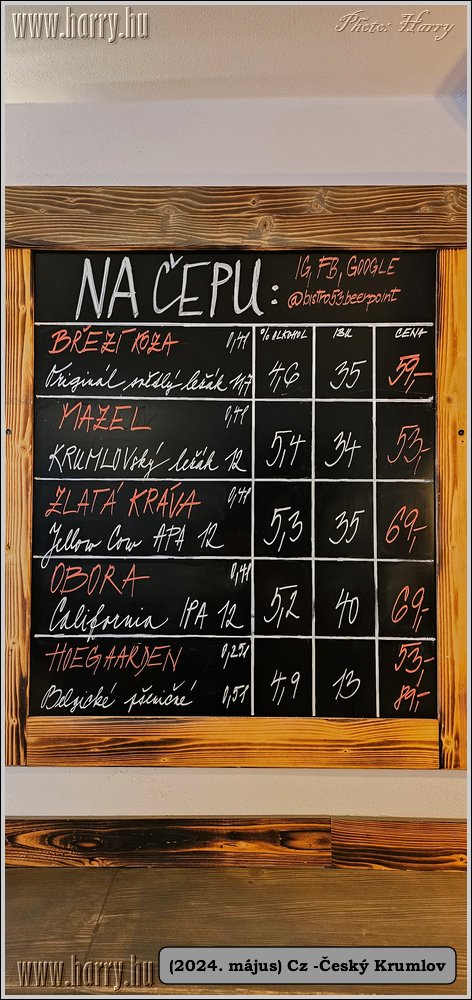 www.harry.hu
Photo: Harry
NA ČEPU:
IG, FB, GOOGLE
@bistro53.beerpoint
% ALKOHOL IBU CENA
BŘEZÍ KOZA 0,4l
Originál světlý ležák 11,7 4,6 35 59,-
MAZEL 0,4l
KRUMLOVský ležák 12 5,4 34 53,-
ZLATÁ KRÁVA 0,4l
Yellow Cow APA 12 5,3 35 69,-
OBORA 0,4l
California IPA 12 5,2 40 69,-
HOEGAARDEN 0,25l 53,-
Belgické pšeničné 0,5l 4,9 13 89,-
www.harry.hu
(2024. május) Cz -Český Krumlov